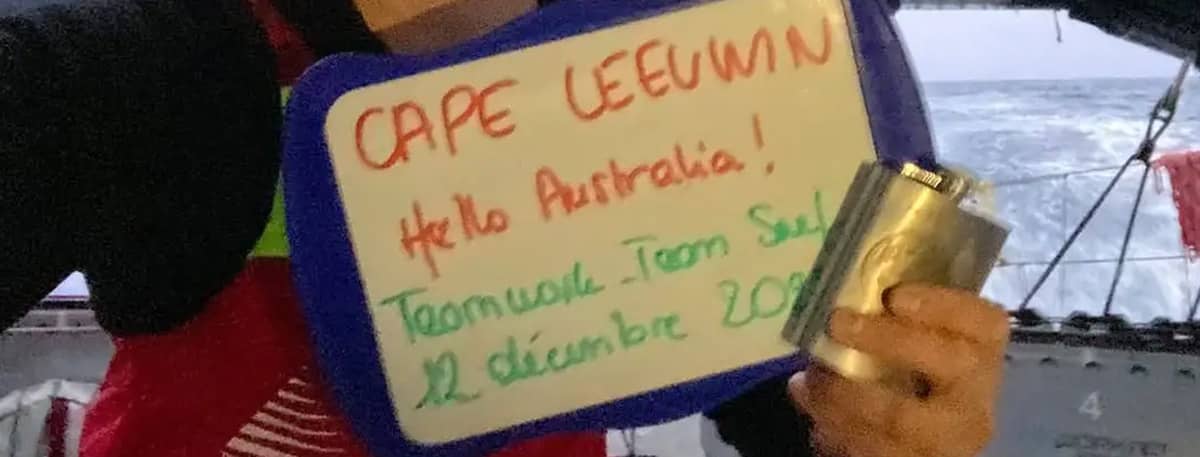 CAPE LEEUWIN
Hello Australia!
Teamwork - Team Snef
12 décembre 202
4